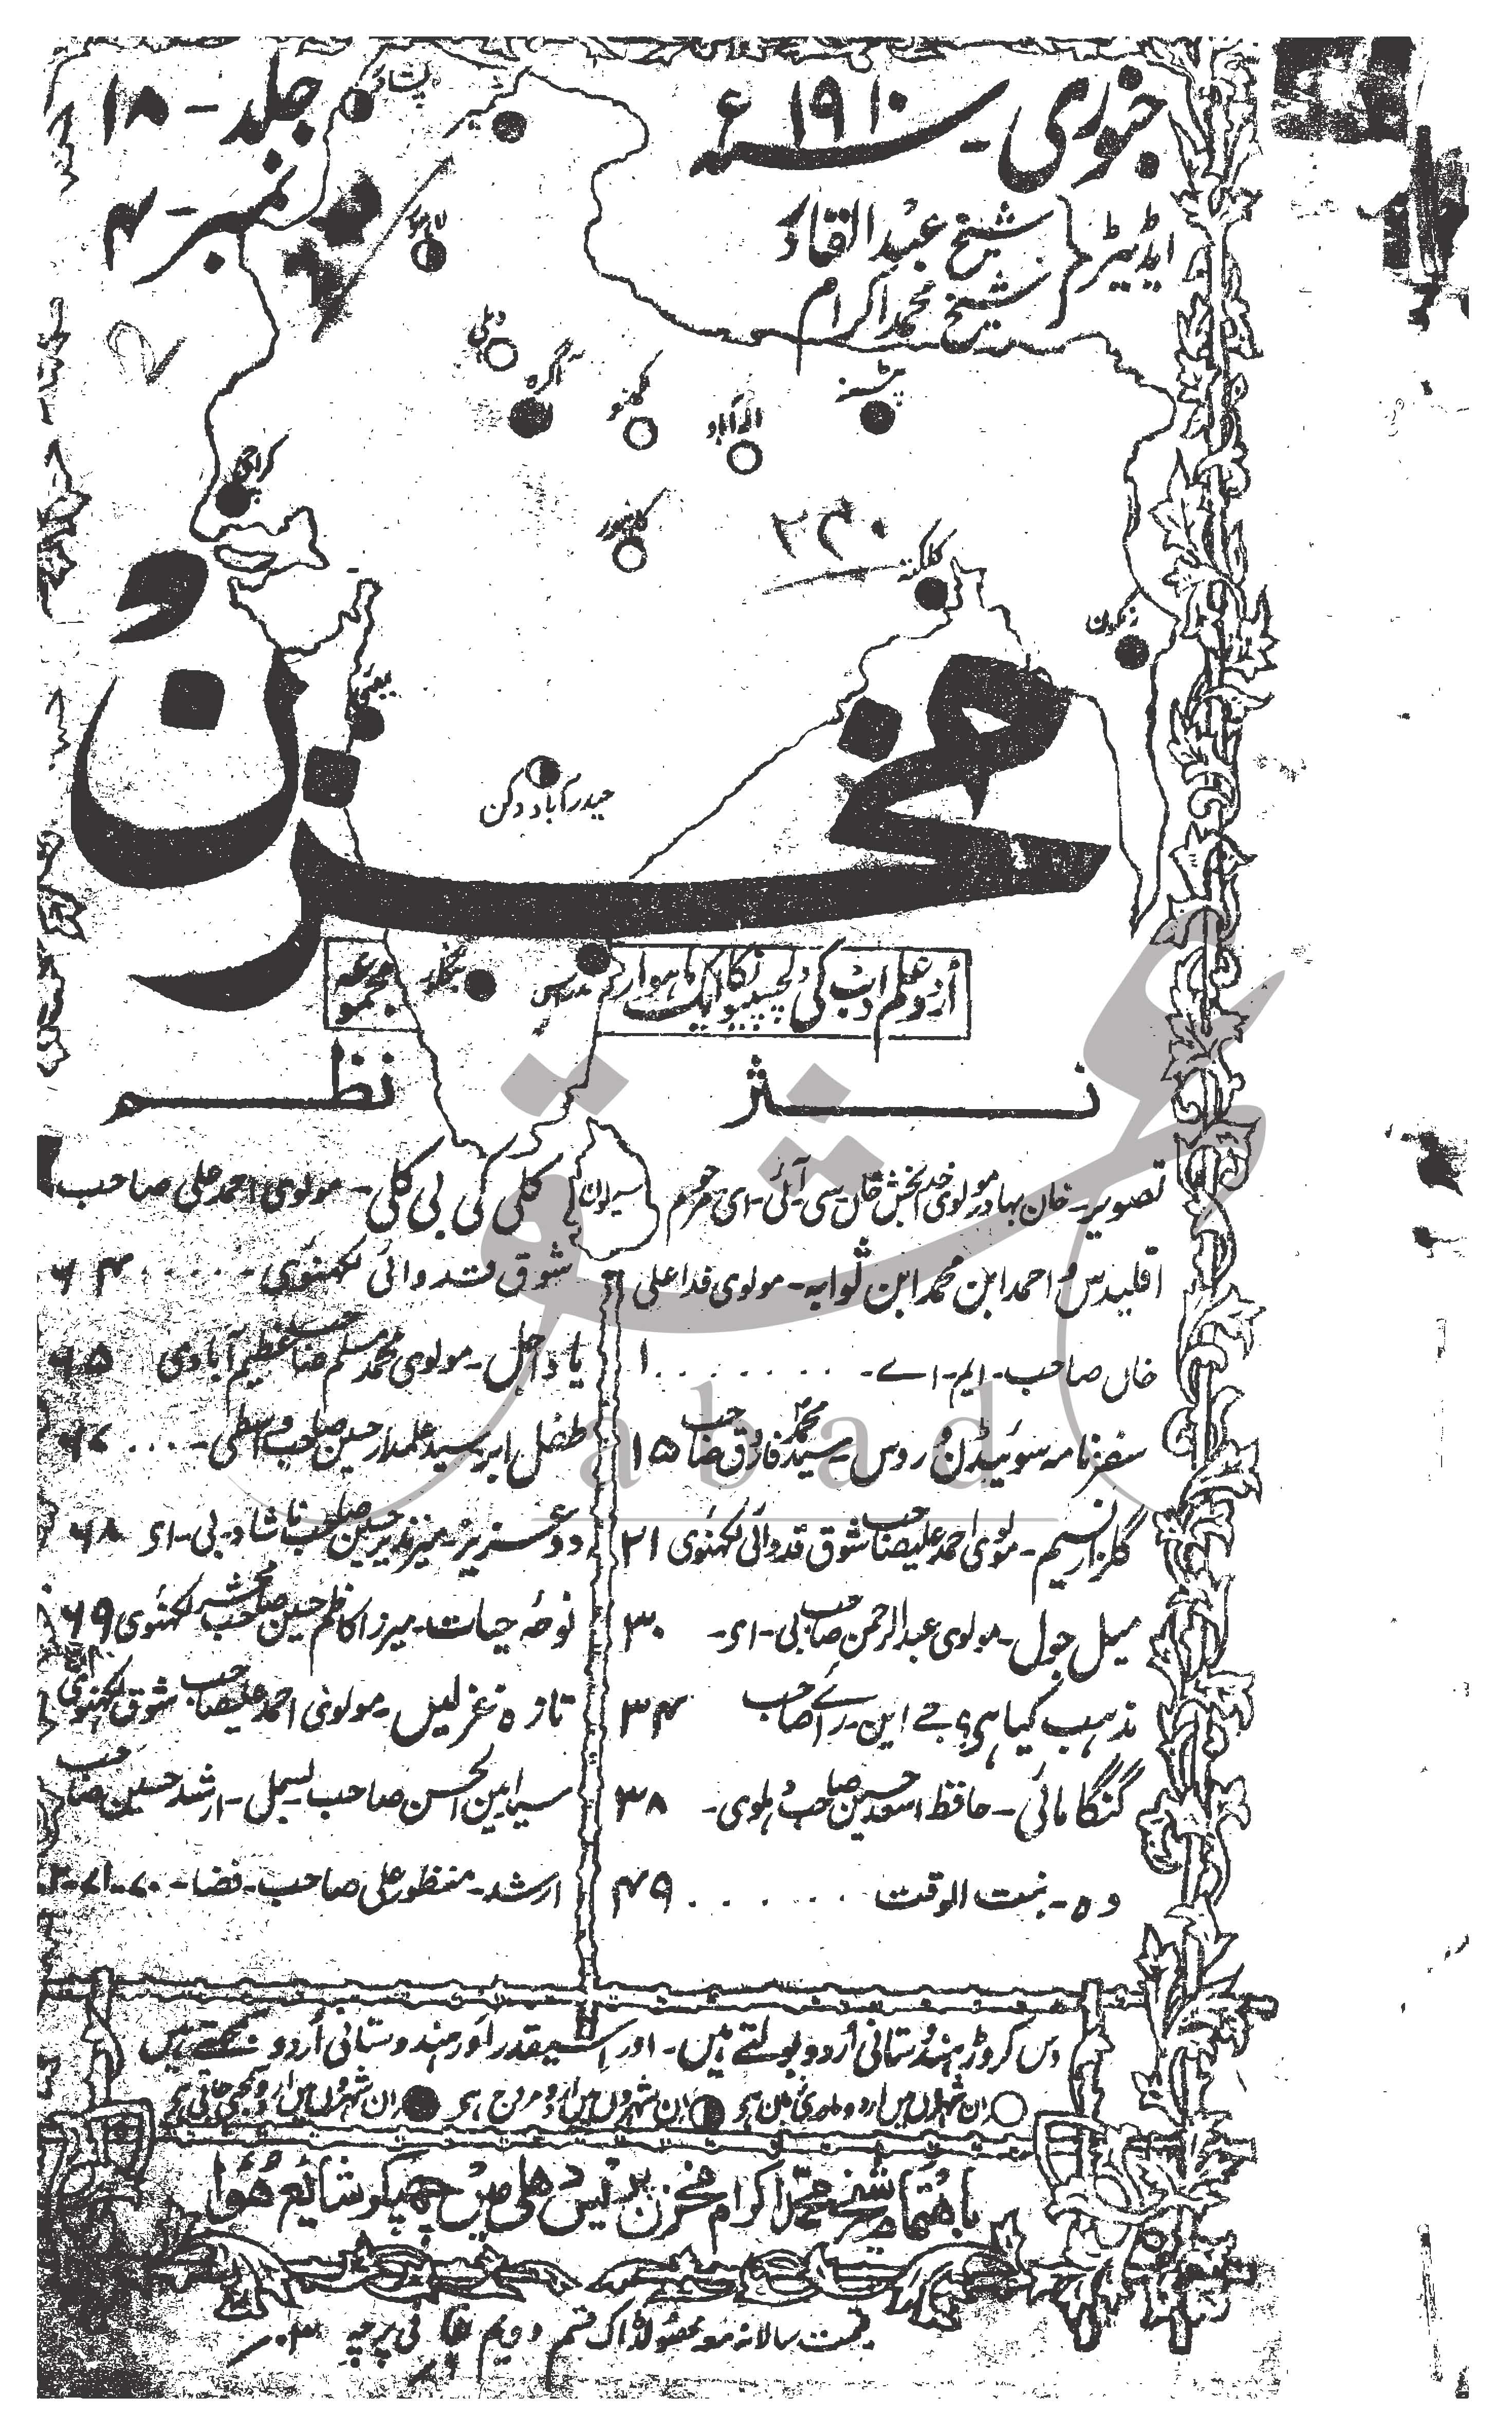 جنوری سنہ ۱۹۱۰ء
جلد - ۱۸
نمبر - ۴
ایڈیٹر
شیخ عبدالقادر
شیخ محمد اکرام
پشاور
کشمیر
لاہور
دہلی
آگرہ
لکھنؤ
الہ آباد
پٹنہ
کراچی
کانپور
۲۴۰
کلکتہ
رنگون
بمبئی
حیدرآباد دکن
مخزن
اُردو علم ادب کی دلچسپیوں کا ایک ماہوار
مجموعہ
مدراس
بنگلور
سیلون
نثر
تصویر - خان بہادر مولوی خدا بخش خاں سی - آئی - ای مرحوم
اقلیدس و احمد ابن محمد ابن ثوابہ - مولوی فدا علی
خاں صاحب - ایم - اے - ۱
سفرنامہ سوئیڈن و روس - سید محمد فاروق صاحب ۱۵
گلزار نسیم - مولوی احمد علی صاحب شوق قدوائی لکھنوی ۲۱
میل جول - مولوی عبدالرحمن صاحب بی - ای - ۳۰
مذہب کیا ہی؟ جے - این - رائے صاحب ۳۴
گنگا مائی - حافظ اسعد حسین صاحب دہلوی - ۳۸
وہ - بنت الوقت ۴۹
نظم
کلی کی بی کلی - مولوی احمد علی صاحب
شوق قدوائی لکھنوی - ۶۴
یاد اجل - مولوی محمد مسلم صاحب عظیم آبادی ۶۵
طفل ابر - سید علمدار حسین صاحب واسطی - ۶۷
دو عزیز - میر نذیر حسین صاحب ناشاد - بی - ای ۶۸
نوحہ حیات - میرزا کاظم حسین صاحب محشر لکھنوی ۶۹
تازہ غزلیں - مولوی احمد علی صاحب شوق لکھنوی
سید امین الحسن صاحب بسمل - ارشد حسین صاحب
ارشد - منظور علی صاحب - فضا - ۷۰ - ۷۱ - ۷۲
دس کروڑ ہندوستانی اُردو بولتے ہیں - اور اسیقدر اور ہندوستانی اُردو سمجھتے ہیں
ان شہروں میں اردو مادری زبان ہی ان شہروں میں اردو مروج ہی ان شہروں میں اردو سمجھی جاتی ہی
باہتمام شیخ محمد اکرام مخزن پریس دہلی میں چھپکر شایع ہوا
قیمت سالانہ معہ محصولڈاک قسم دویم فی پرچہ
abad